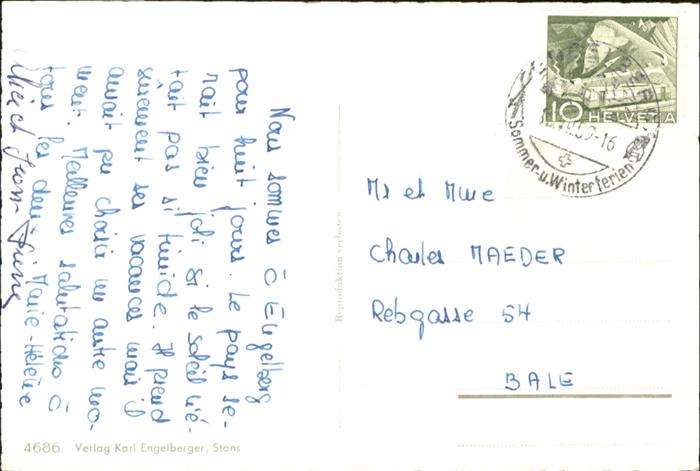 Nous sommes à Engelberg
pour huit jours. Le pays se-
rait bien joli si le soleil n'é-
tait pas si timide. Il prend
sûrement ses vacances mais il
aurait pu choisir un autre mo-
ment. Meilleures salutations à
tous les deux. Marie-Hélène
et Jean-Pierre
HELVETIA
10
-16
Sommer-u.Winterferien
Mr et Mme
Charles MAEDER
Rebgasse 54
BALE
Reproduktion verboten
4686 Verlag Karl Engelberger, Stans